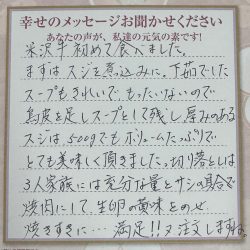 幸せのメッセージお聞かせください
あなたの声が、私達の元気の素です!
米沢牛初めて食べました。
まずはスジを煮込みに。下茹でした
スープもきれいで もったいないので
鳥皮を足しスープとして残し厚みのある
スジは、500gでもボリュームたっぷりで
とても美味しく頂きました。切り落としは
3人家族には充分な量とサシの具合で
焼肉にして生卵の黄味をのせ
焼きすきに… 満足!!又注文しますね。